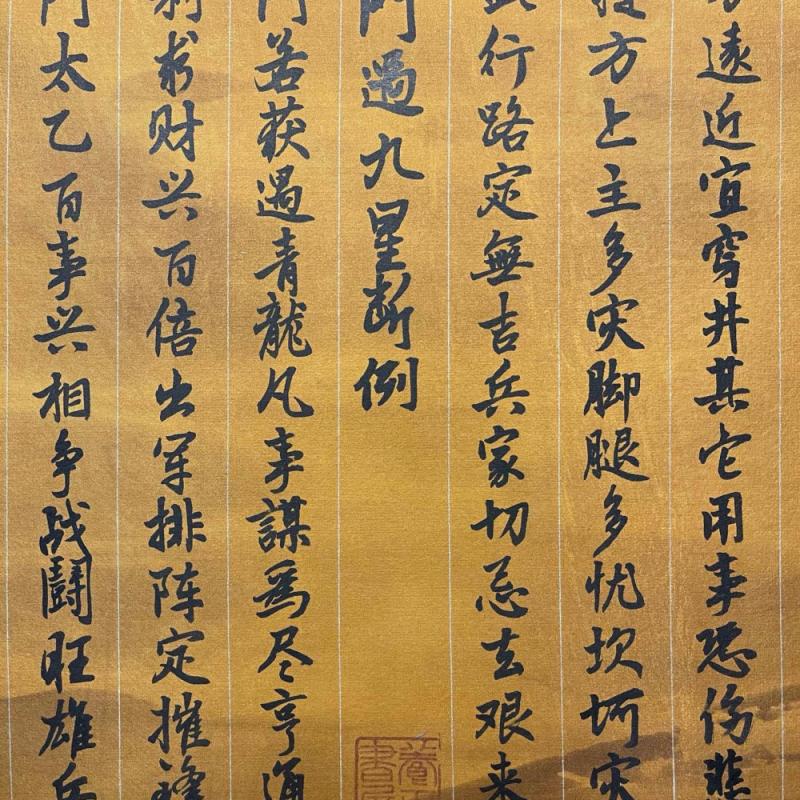 遠近宜穿井其它用事恐傷悲
方上主多灾脚腿多忧坎坷灾
行路定無吉兵家切忌去艰来
門過九星断例
門若获過青龍凡事謀爲尽亨通
求财兴百倍出军排阵定摧鋒
門太乙百事兴相争战鬪旺雄兵